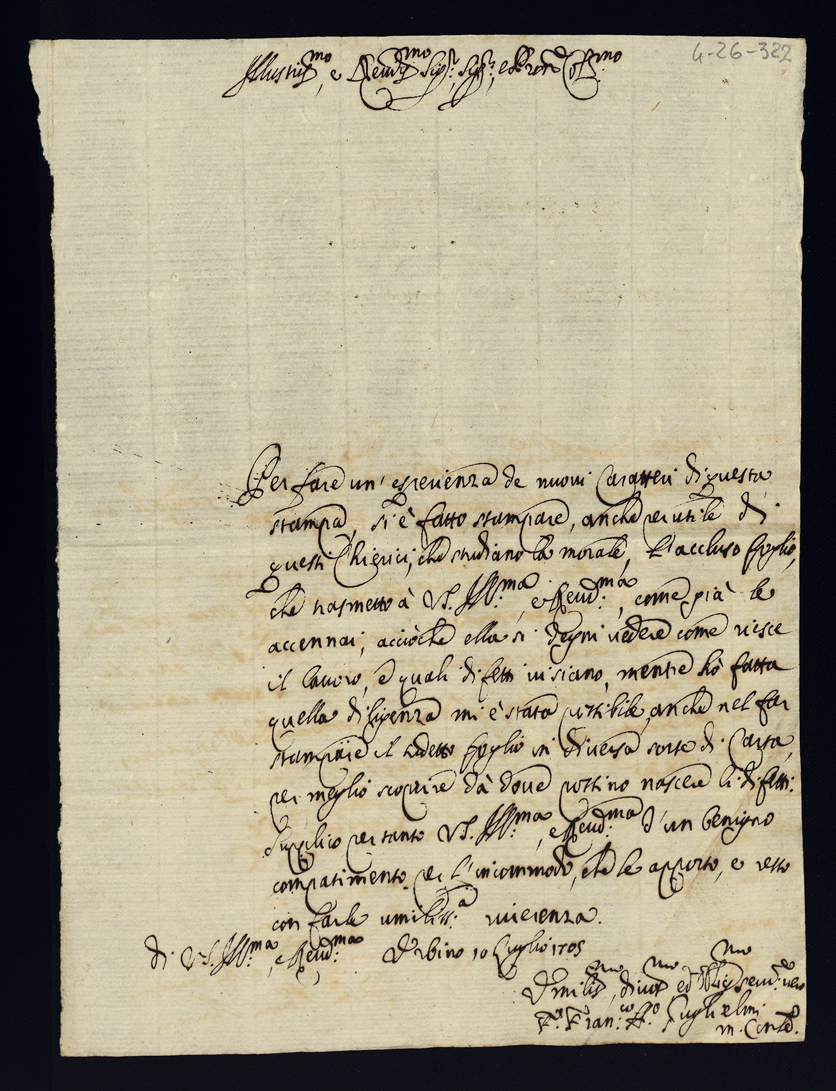 4-26-322
Illustriss.mo, e Reud.mo Sig.r, Sig.r, e Pron Col.mo
Per fare un' esperienza de nuovi Caratteri di questa
stampa, si è fatto stampare, anche per utile di
questi Chierici, che studiano la morale, l'accluso foglio,
che trasmetto à VS. Ill.ma, e Reud.ma, come già le
accennai, acciòche ella si degni vedere come riesce
il lavoro, e quali difetti vi siano, mentre hò fatta
quella diligenza mi è stata possibile, anche nel far
stampare il sudetto foglio in diversa sorte di Carta,
per meglio scoprire dà dove possino nascere li difetti.
Supplico per tanto VS. Ill.ma, e Reud.ma d'un benigno
compatimento per l'incommodo, che le apporto, e resto
con farle umiliss.a riverenza.
di VS. Ill.ma, e Reud.ma Urbino 10 Luglio 1705
Umilis.mo, divot.mo ed Oblig.mo serud.e vero
F. Fran.co A.o Guglielmi
m. Conv.